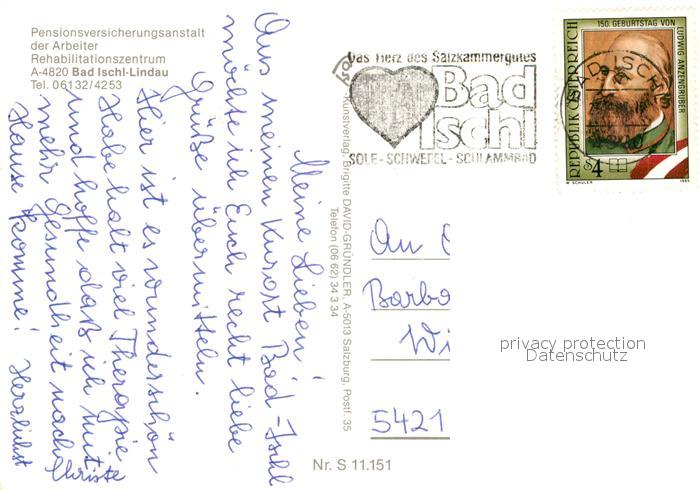 Pensionsversicherungsanstalt
der Arbeiter
Rehabilitationszentrum
A-4820 Bad Ischl-Lindau
Tel. 06132/4253
Meine Lieben!
Aus meinen Kurort Bad-Ischl
möchte ich Euch recht liebe
Grüße übermitteln.
Hier ist es wunderschön
Habe halt viel Therapie
und hoffe daß ich mit
mehr Gesundheit nach
Hause komme! Herzlichst
Christe
Kunstverlag Brigitte DAVID-GRÜNDLER, A-5013 Salzburg, Postf. 35
Telefon (06 62) 34 3 34
Das Herz des Salzkammergutes
Bad
Ischl
SOLE-SCHWEFEL-SCHLAMMBAD
150. GEBURTSTAG VON LUDWIG ANZENGRUBER
REPUBLIK ÖSTERREICH
S4
BAD ISCHL
An
Barba
Wi
5421
privacy protection
Datenschutz
Nr. S 11.151